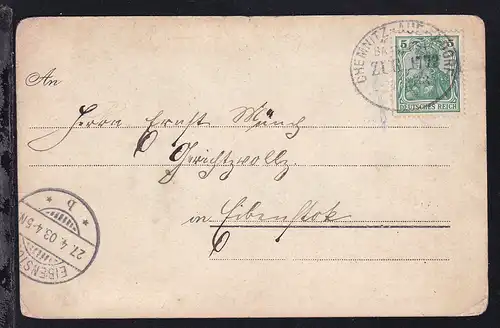 CHEMNITZ-AUE-
ZUG 1773
5
DEUTSCHES REICH
An
Herrn Ernst Münch
Gerichtsvollz.
in Eibenstok
EIBENSTO
27.4.03.4-5N
* b *